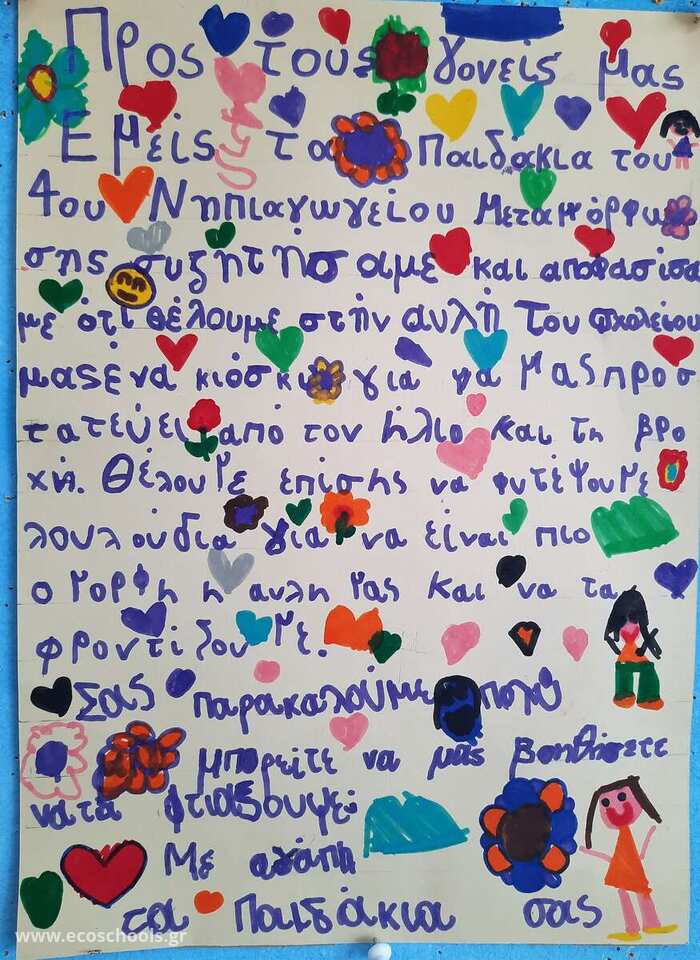 Προς τους γονείς μας
Εμείς τα Παιδάκια του
4ου Νηπιαγωγείου Μεταμόρφω
σης συζητήσαμε και αποφασίσα
με ότι θέλουμε στην αυλή του σχολείου
μας ένα κιόσκι για να μας προσ
τατεύει από τον ήλιο και τη βρο
χή. Θέλουμε επίσης να φυτέψουμε
λουλούδια για να είναι πιο
όμορφη η αυλη μας και να τα
φροντίζουμε.
Σας παρακαλούμε πολύ
μπορείτε να μας βοηθήσετε
να τα φτιάξουμε;
Με αγάπη
τα Παιδάκια σας
www.ecoschools.gr